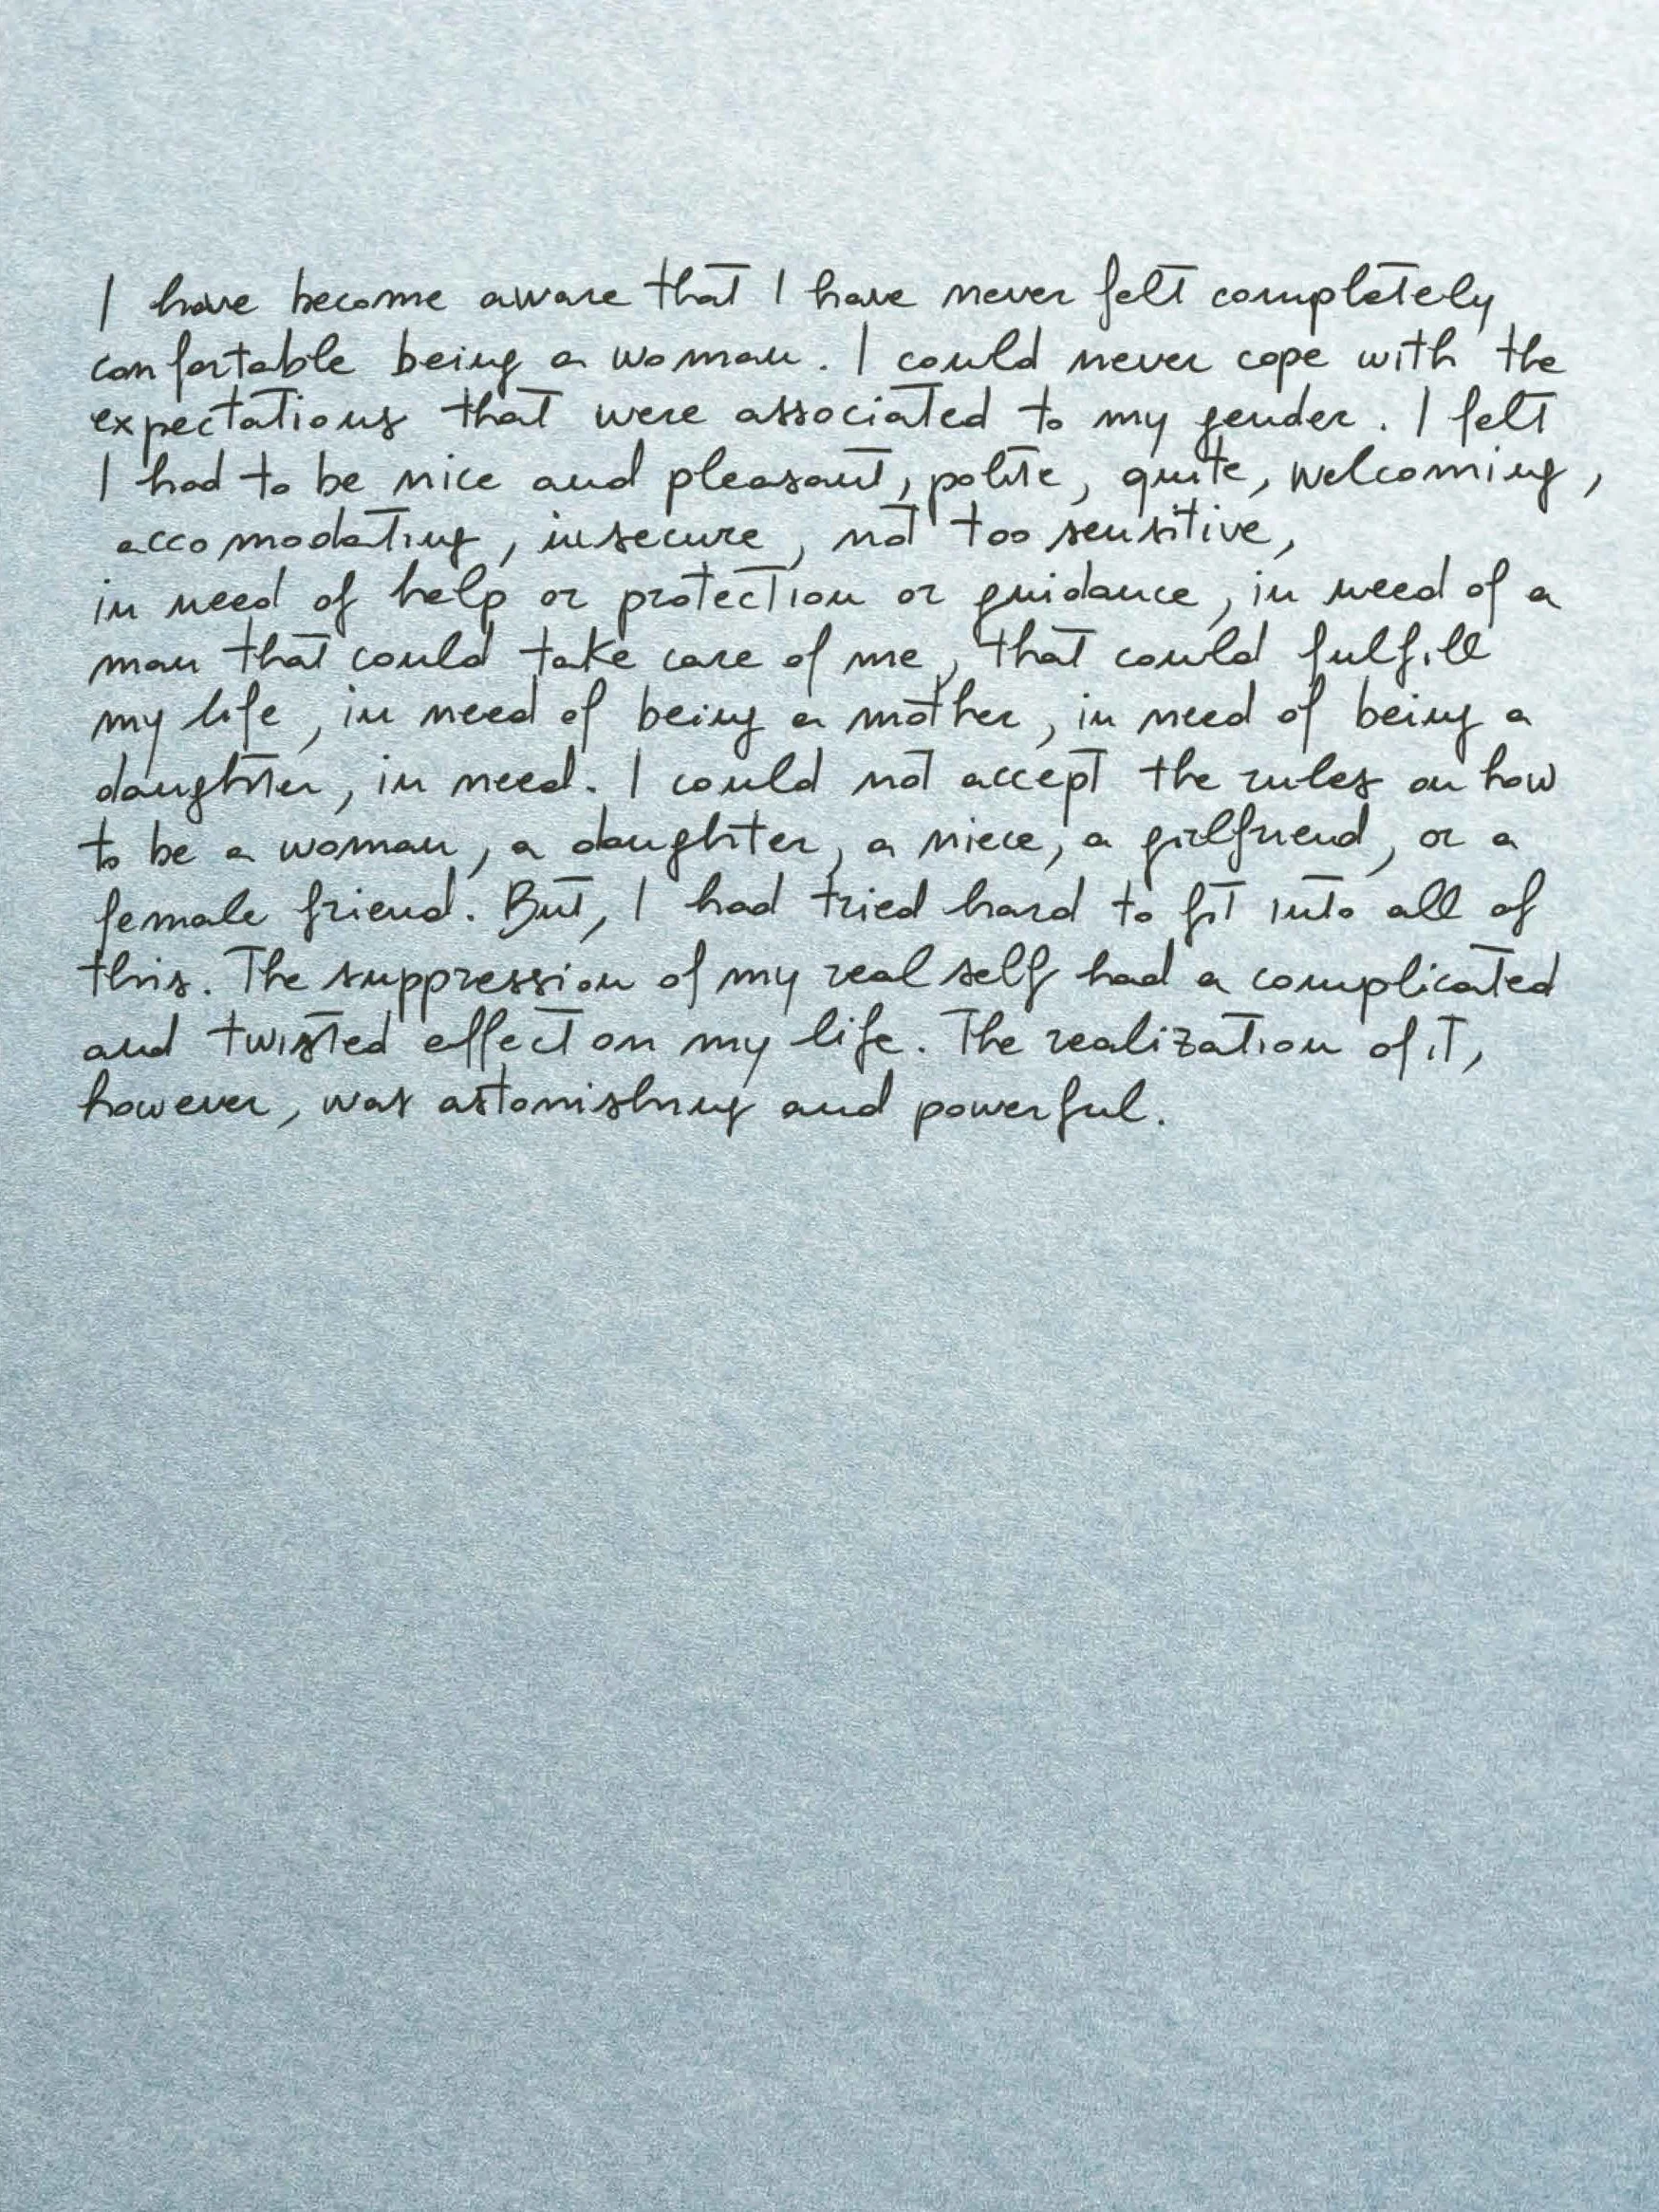 I have become aware that I have never felt completely
confortable being a woman. I could never cope with the
expectations that were associated to my gender. I felt
I had to be nice and pleasant, polite, quite, welcoming,
accomodating, insecure, not too sensitive,
in need of help or protection or guidance, in need of a
man that could take care of me, that could fulfill
my life, in need of being a mother, in need of being a
daughter, in need. I could not accept the rules on how
to be a woman, a daughter, a niece, a girlfriend, or a
female friend. But, I had tried hard to fit into all of
this. The suppression of my real self had a complicated
and twisted effect on my life. The realization of it,
however, was astonishing and powerful.